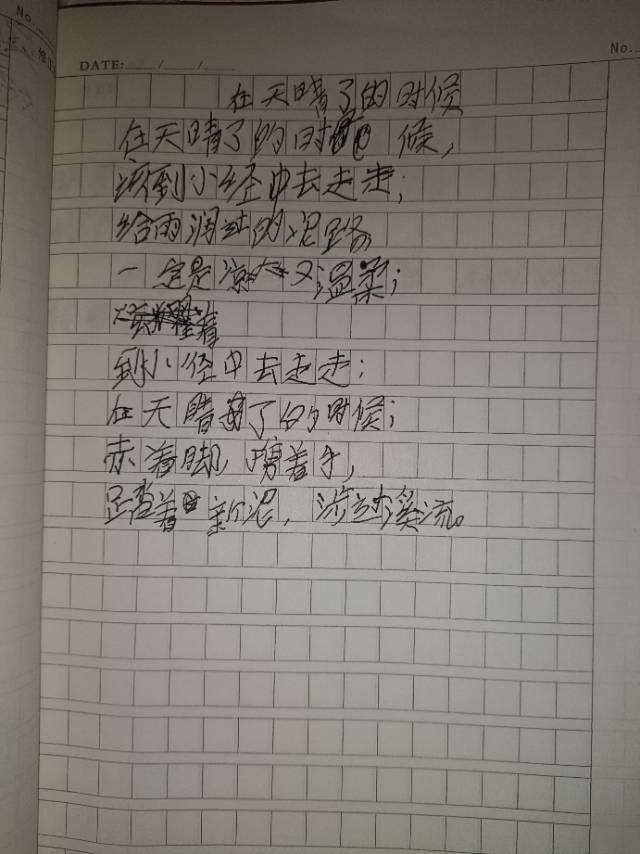 No.
DATE: / /
No.
在天晴了的时候
在天晴了的时候,
该到小经中去走走;
给雨润过的泥路,
一定是凉又温柔;
到小径中去走走:
在天晴了的时候;
赤着脚,携着手,
踏着新泥,涉过溪流。